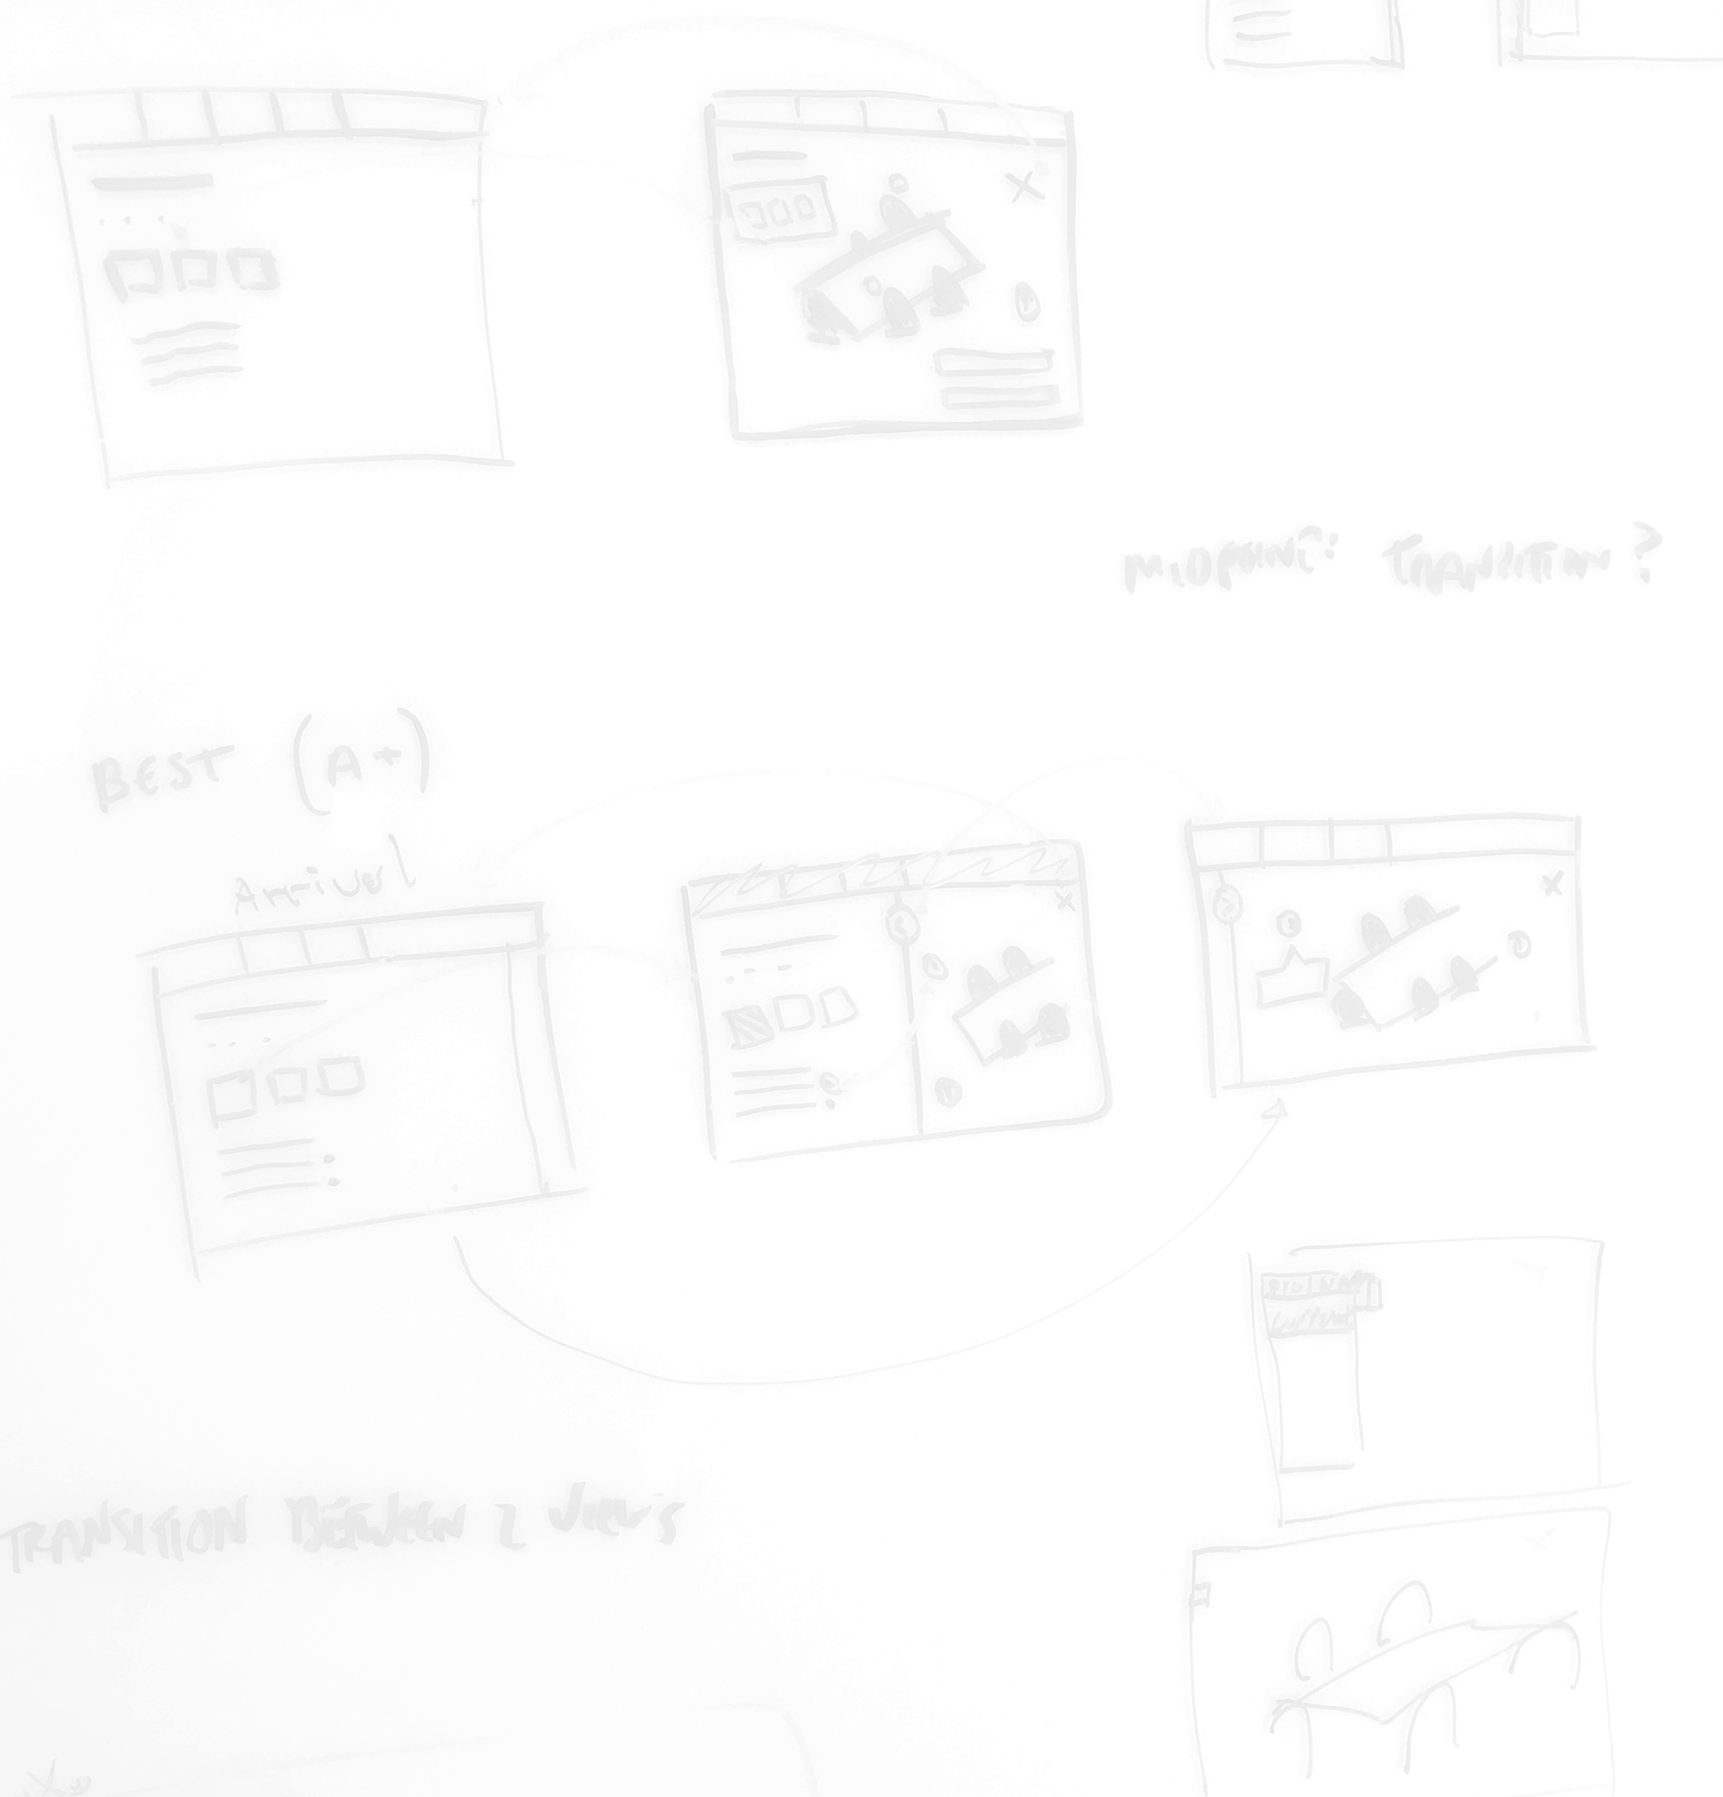 TRANSITION?
BEST (A+)
Arrival
TRANSITION BETWEEN 2 VIEWS